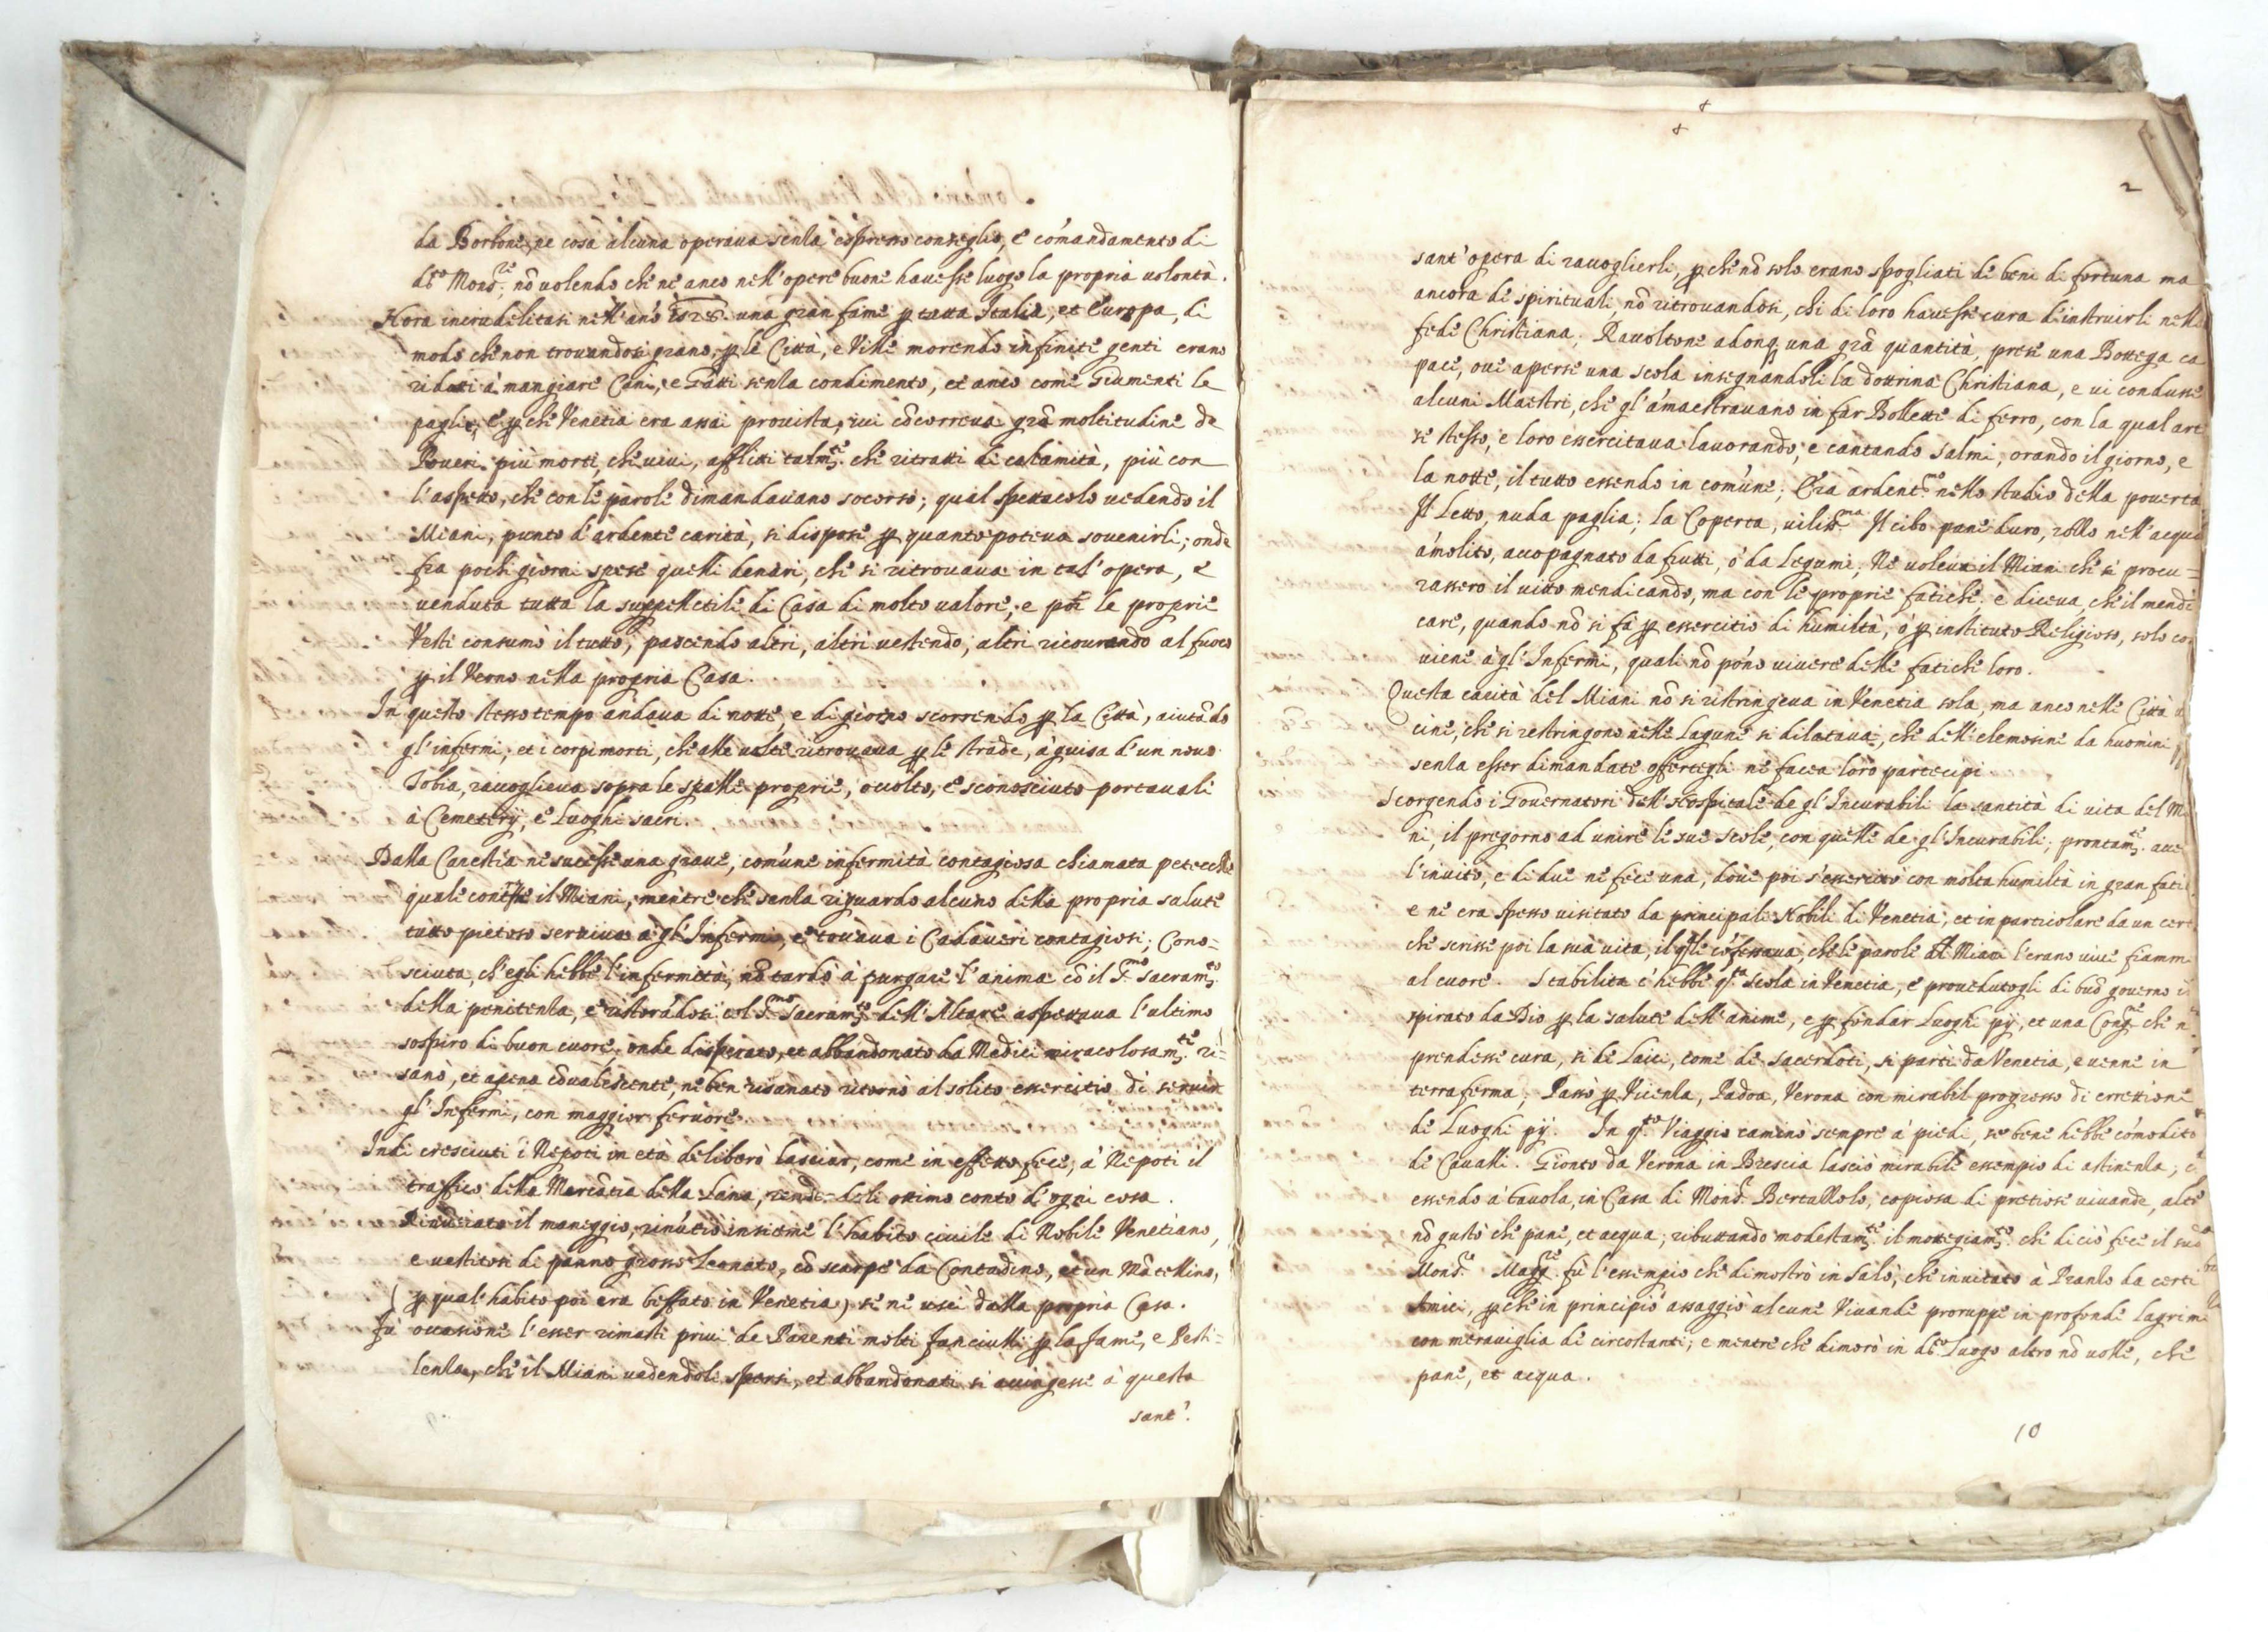 da Borbone, ne cosa alcuna operaua senza espresso conseglio, e comandamento di
dto Monsre, nō uolendo che ne anco nell'opere buone hauesse luogo la propria uolontà.
Hora incrudelitasi nell'ano 1528. una gran fame ꝑ tutta Italia, et Europa, di
modo che non trouandosi grano, ꝑ le Città, e Ville morendo infinite genti erano
ridotti à mangiare Cani, e Gatti senza condimento, et anco come Giumenti le
paglie, e ꝑ che Venetia era assai prouista, iui cōcorreua grā moltitudine de
Poueri più morti, che uiui, afflitti talmte che ritratti di calamità, più con
l'aspetto, che con le parole dimandauano socorso; qual spettacolo uedendo il
Miani, punto d'ardente carità, si dispose ꝑ quanto poteua souenirli; onde
fra pochi giorni spese quelli denari, che si ritrouaua in tal'opera, e
uenduta tutta la suppelletile di Casa di molto ualore, e poi le proprie
Vesti consumò il tutto, pascendo altri, altri uestendo, altri ricourando al fuoco
ꝑ il Verno nella propria Casa.
In questo stesso tempo andaua di notte, e di giorno scorrendo ꝑ la Città, aiutādo
gl'infermi, et i corpi morti, che alle uolte ritrouaua ꝑ le strade, à guisa d'un nouo
Tobia, rauoglieua sopra le spalle proprie, occolto, e sconosciuto portauali
à Cemeterij, e Luoghi sacri.
Dalla Carestia ne sucesse una graue, comune infermità contagiosa chiamata petecchie
quale contrasse il Miani, mentre che senza riguardo alcuno della propria salute
tutto pietoso seruiua à gl'Infermi, e tocaua i Cadaueri contagiosi; Cono=
sciuta, ch'egli hebbe l'infermità, nō tardò à purgare l'anima cō il Smo sacramto
della penitenza, e ristorādosi col Smo Sacramto dell'Altare aspettaua l'ultimo
sospiro di buon cuore, onde disperato, et abbandonato da Medici miracolosamte ri=
sanò, et apena cōualescente, ne ben risanato ritornò al solito essercitio di seruir
gl'Infermi, con maggior feruore.
Indi cresciuti i Nepoti in età deliberò lasciar, come in effetto fece, à Nepoti il
traffico della Marcātia della Lana, rendēdoli ottimo conto di ogni cosa.
Rinūciato il maneggio, rinūtiò insieme l'habito ciuile di Nobile Venetiano,
e uestitosi di panno grosso Leonato, cō scarpe da Contadino, et un Mātellino,
(ꝑ qual'habito poi era beffato in Venetia) se ne uscì dalla propria Casa.
Fù occasione l'esser rimasti priui de Parenti molti fanciulli ꝑ la fame, e Pesti=
lenza, che il Miani uedendoli spersi, et abbandonati si acingesse à questa
sant'.
2
sant'opera di rauoglierli, ꝑ che nō solo erano spogliati de beni di fortuna ma
ancora de spirituali, nō ritrouandosi, chi di loro hauesse cura d'instruirli nella
fede Christiana, Rauoltone adonq una grā quantità, prese una Bottega ca
pace, oue aperse una scola insegnandoli la dottrina Christiana, e ui condusse
alcuni Maestri, che gl'amaestrauano in far Bollette di ferro, con la qual art
se stesso, e loro essercitaua lauorando, e cantando Salmi, orando il giorno, e
la notte, il tutto essendo in comune; Era ardentmo nello studio della pouertà
Il Letto, nuda paglia; la Coperta, uilissma Il cibo pane duro, zollo nell'acqua
amolito, accopagnato da frutti, ò da legumi, Ne uoleua il Miani che si procu=
rassero il uitto mendicando, ma con le proprie fatiche, e diceua, che il mendi
care, quando nō si fà ꝑ essercitio di humiltà, ò ꝑ instituto Religioso, solo co
uiene à gl'Infermi, quali nō pono uiuere delle fatiche loro.
Questa carità del Miani nō si ristringeua in Venetia sola, ma anco nelle Città ui
cine, che si restringono nelle Lagune si dilataua, che dell'elemosine da huomini
senza esser dimandate offertegli ne facea loro partecipi.
Scorgendo i Gouernatori dell'Hospitale de gl'Incurabili la santità di uita del Mi
ni, il pregorno ad unire le sue scole, con quelle de gl'Incurabili; prontamte acc
l'inuito, e di due ne fece una, doue poi s'essercitò con molta humiltà in gran fati
e ne era spesso uisitato da principali Nobili di Venetia, et in particolare da un cert
che scrisse poi la sua uita, il qle cofessaua, che le parole del Miani l'erano uiue fiamm
al cuore. Stabilita c'hebbe qta scola in Venetia, e prouedutogli di buō gouerno i
spirato da Dio ꝑ la salute dell'anime, e ꝑ fondar Luoghi pij, et una Congne che n
prendesse cura, si de Laici, come de sacerdoti, si partì da Venetia, e uenne in
terraferma, Passò ꝑ Vicenza, Padoa, Verona con mirabil progresso di errettione
de Luoghi pij. In qto Viaggio caminò sempre à piedi, se bene hebbe comodità
de Caualli. Gionto da Verona in Brescia lasciò mirabile essempio di astinenza, e
essendo à tauola, in Casa di Monsr Bertazzolo, copiosa di pretiose uiuande, altr
nō gustò che pane, et acqua, ributtando modestamte il motegiamto che di ciò fece il sud
Monsre Maggre fù l'essempio che dimostrò in Salò, che inuitato à Pranzo da certi
Amici, ꝑ che in principio assaggiò alcune Viuande proruppe in profonde lagrime
con merauiglia de circostanti; e mentre che dimorò in dto Luogo altro nō uolle, che
pane, et acqua.
10